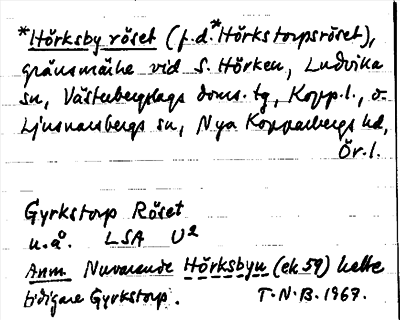 *Hörksby röset (f.d. *Hörkstorpsröset),
gränsmärke vid S. Hörken, Ludvika
sn, Västerbergslags doms. tg, Kopp. l., o.
Ljusnarsbergs sn, Nya Kopparbergs hd,
Ör. l.
Gyrkstorp Röset
u.å. LSA U2
Anm. Nuvarande Hörksbyn (ek 59) hette
tidigare Gyrkstorp. T.N.B. 1967.